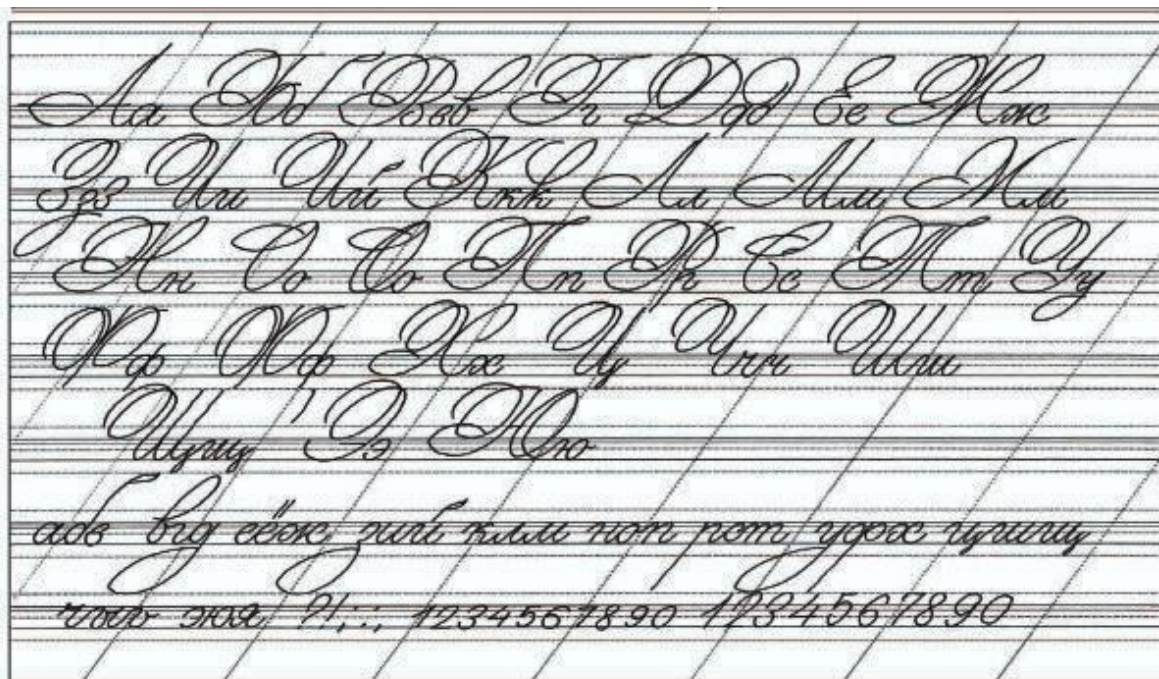 Аа Ббб Ввв Гг Ддд Ее Жж
Ззз Ии Ий Ккк Лл Мм Мм
Нн Оо Оо Пп Рр Сс Тт Уу
Фф Фф Хх Цц Ччч Шш
Щщ Ээ Юю
абв вгд еёж зий клм ноп рст уфх цчшщ
чъыь эюя ?!;:., 1234567890 1234567890